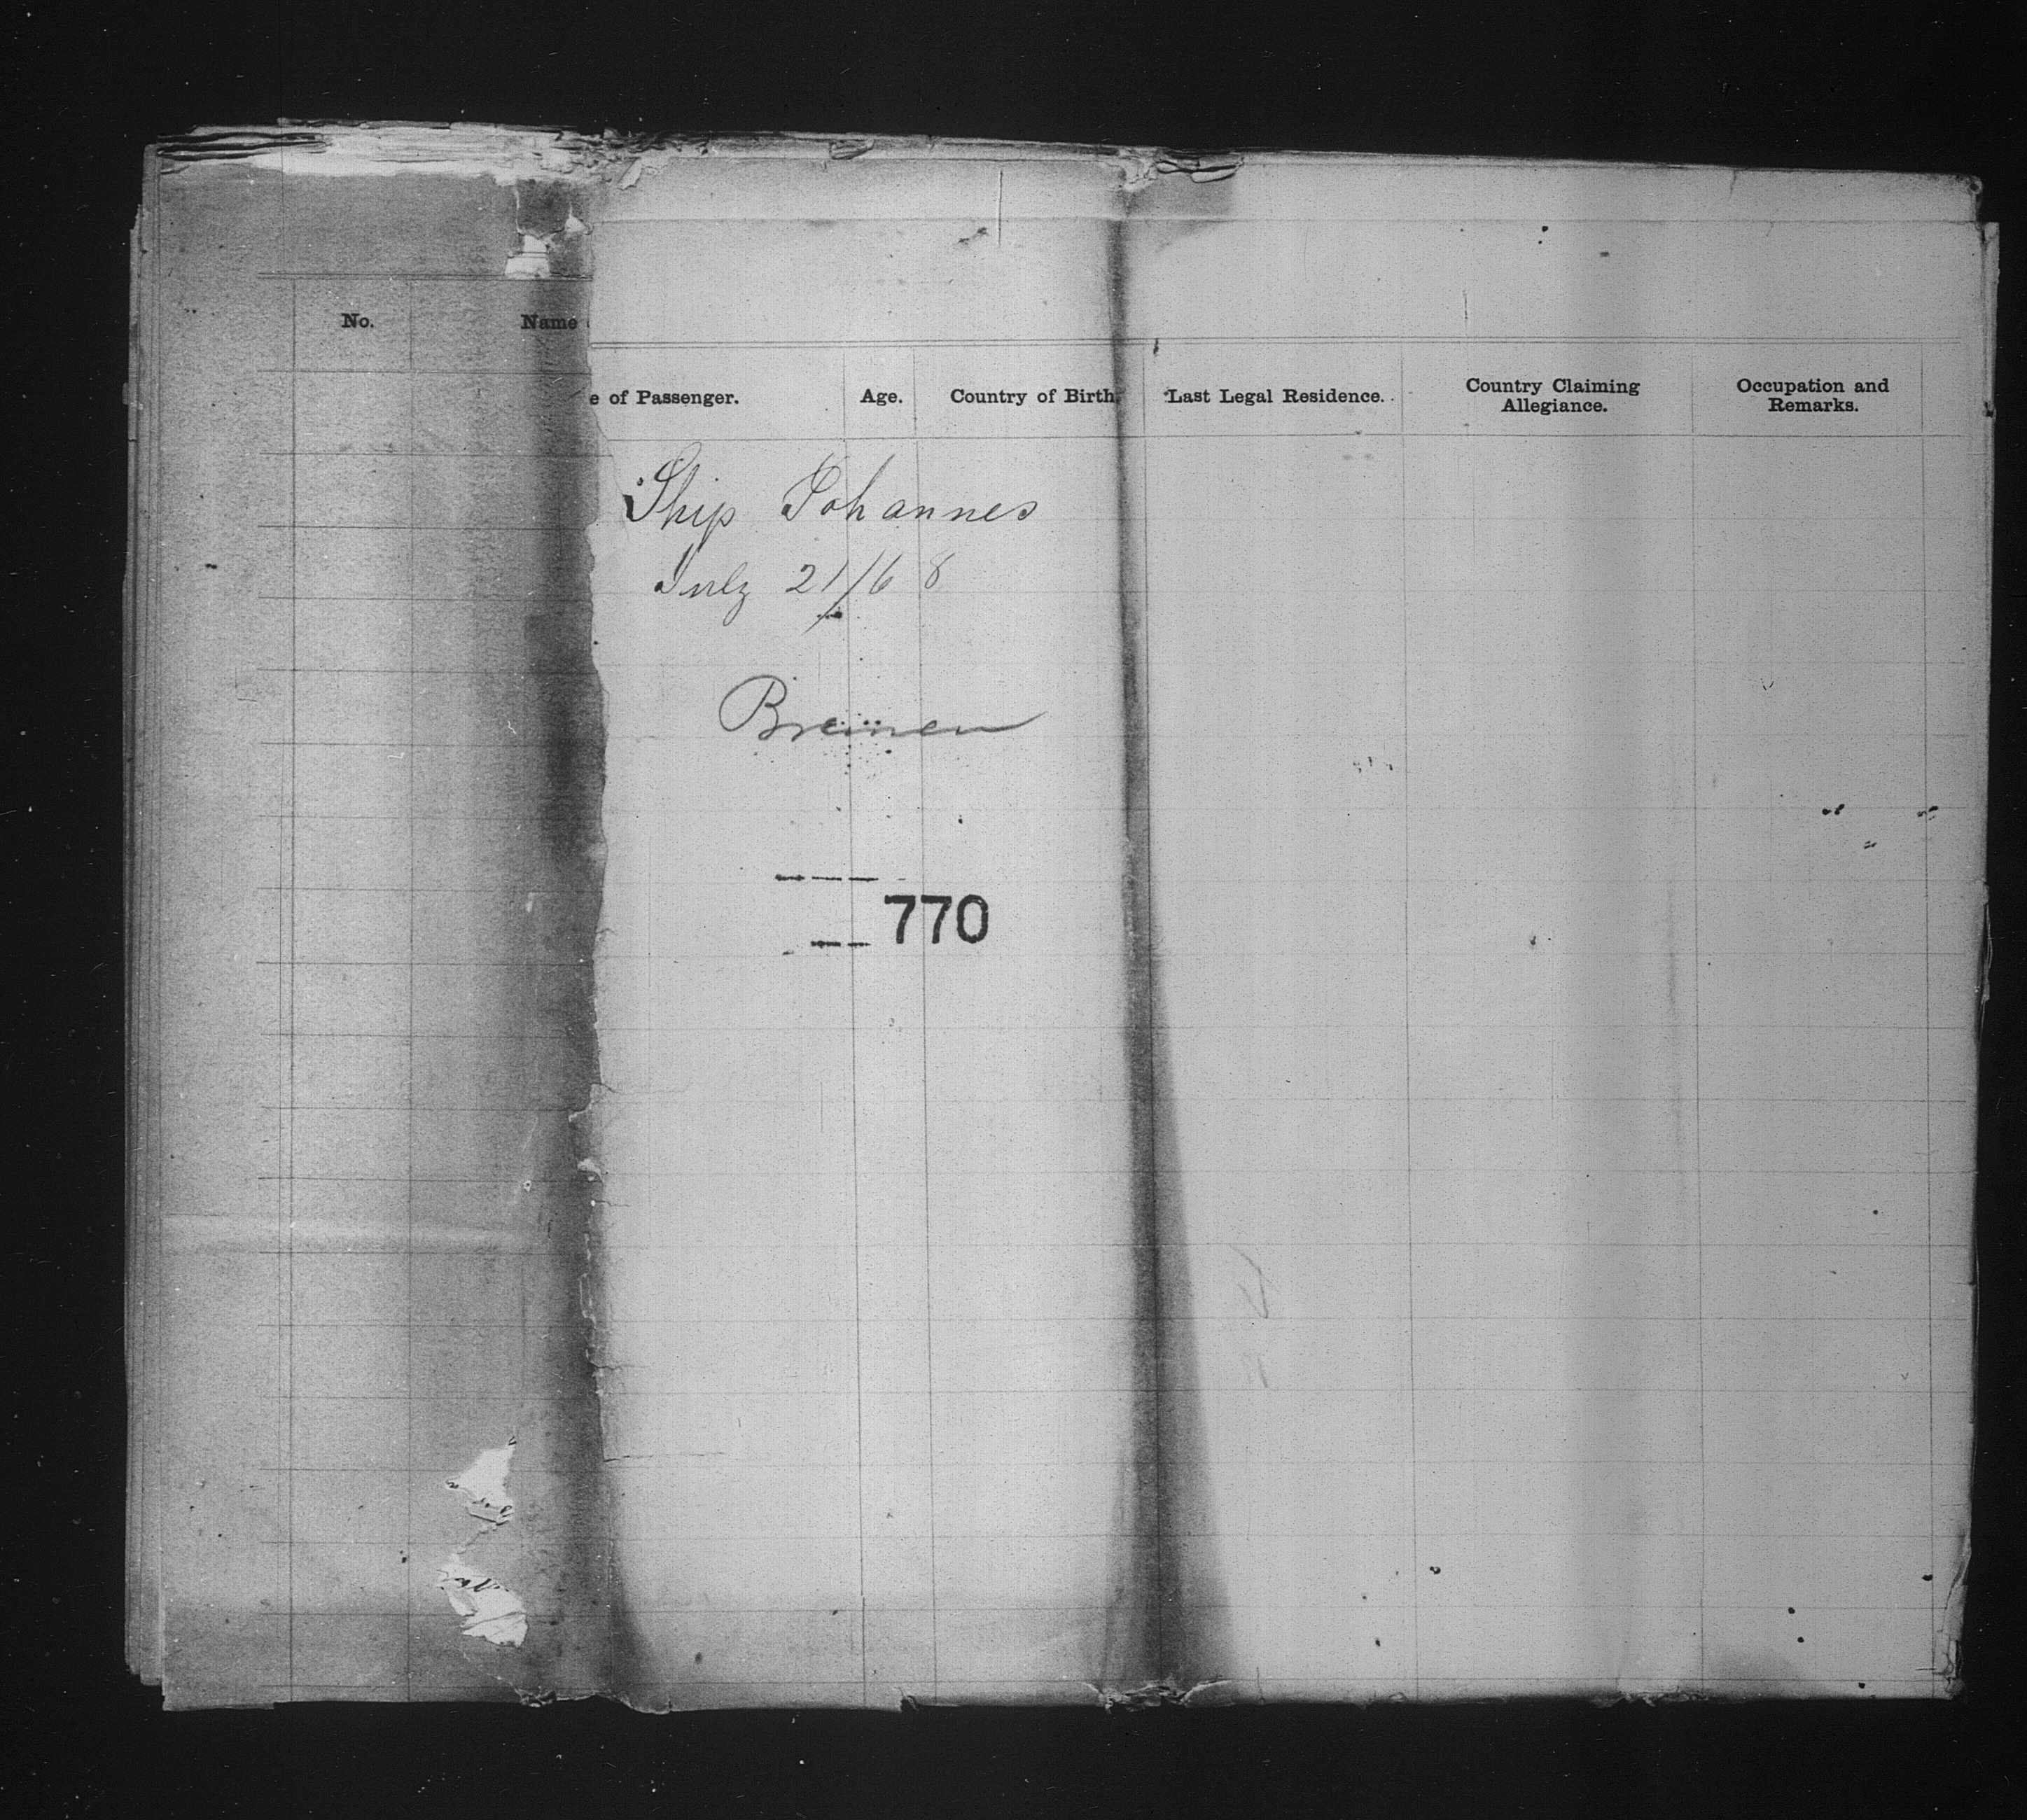 No. Name
e of Passenger. Age. Country of Birth. Last Legal Residence. Country Claiming Allegiance. Occupation and Remarks.
Ship Johannes
July 21/68
Bremen
770